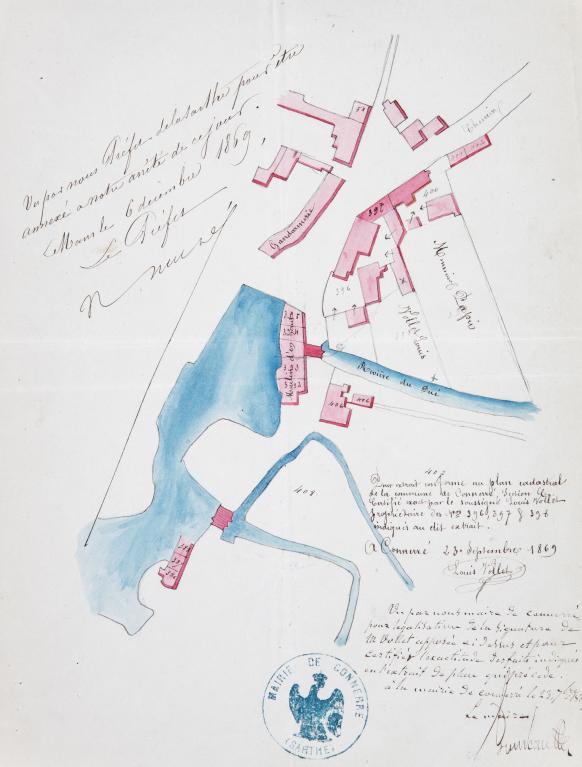 Vu par nous Préfet de la Sarthe pour être
annexé à notre arrêté de ce jour.
Le Mans le 6 décembre 1869,
Le Préfet
Chemin
Gendarmerie
397
400
396
Meunier Papin
Vollet Louis
Moulins d'en
Rivière du Dué
406
406
408
402
Pour extrait conforme au plan cadastral
de la commune de Connerré, Section
Certifié exact par le soussigné Louis Vollet
propriétaire des Nos 396, 397 & 398
indiqués au dit extrait.
A Connerré 23 septembre 1869
Louis Vollet
Vu par nous maire de connerré
pour légalisation de la signature de
M Vollet apposée ci dessus et pour
certifier l'exactitude des faits indiqués
en l'extrait de plan qui précède.
à la mairie de connerré le 23
Le maire
MAIRIE DE CONNERRE
(SARTHE)